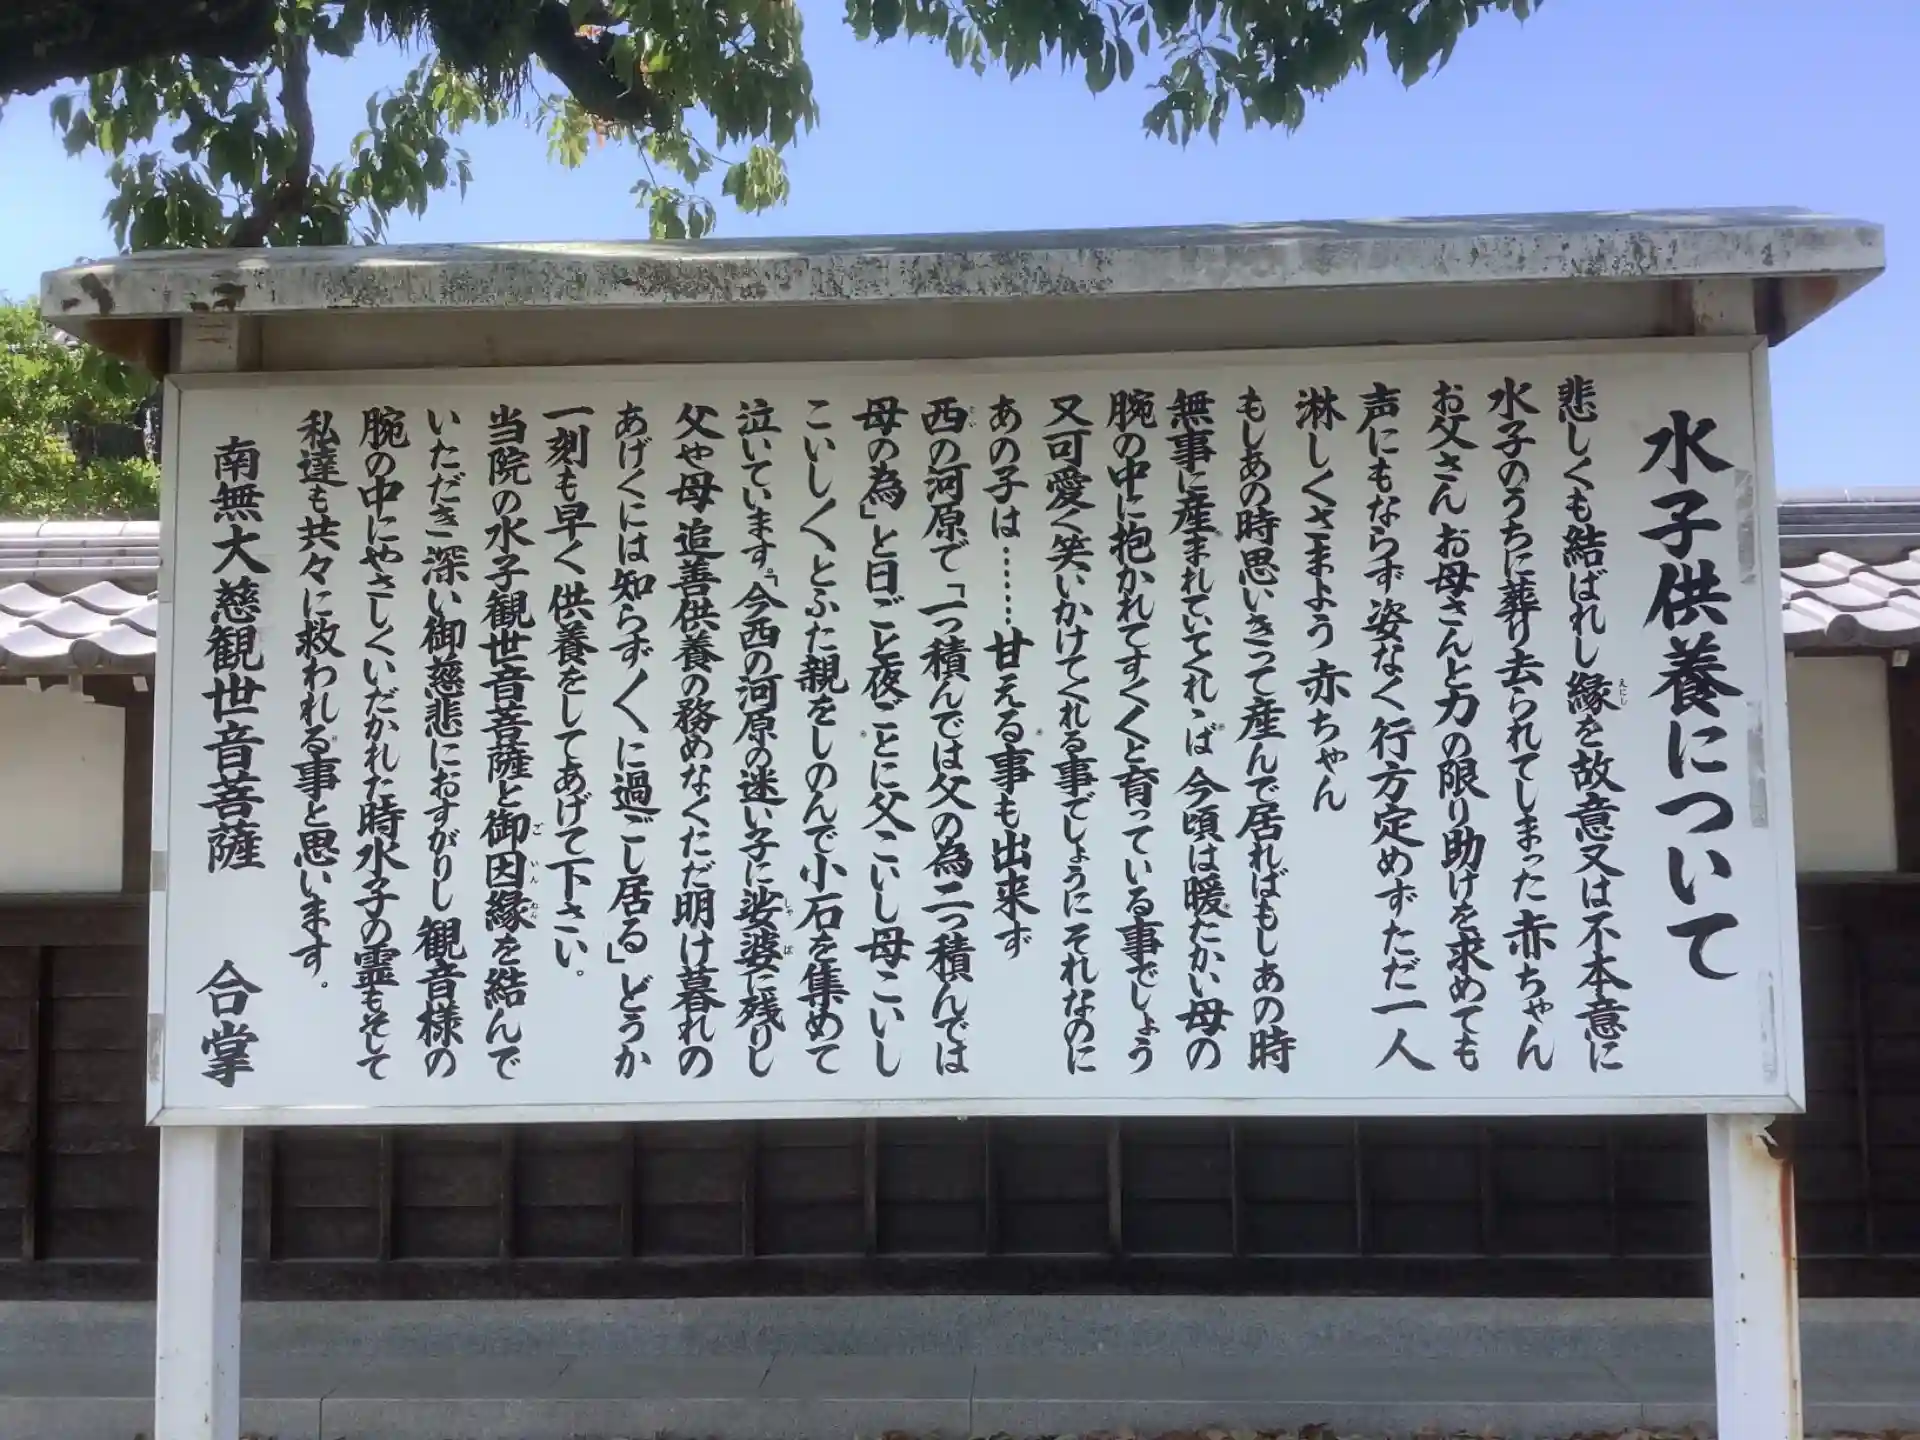 水子供養について
悲しくも結ばれし縁を故意又は不本意に
水子のうちに葬り去られてしまった赤ちゃん
お父さん お母さんと力の限り助けを求めても
声にもならず姿なく行方定めずただ一人
淋しくさまよう 赤ちゃん
もしあの時思いきって産んで居ればもしあの時
無事に産まれていてくれゝば 今頃は暖たかい母の
腕の中に抱かれてすくすくと育っている事でしょう
又可愛く笑いかけてくれる事でしょうにそれなのに
あの子は………甘える事も出来ず
西の河原で「一つ積んでは父の為二つ積んでは
母の為」と日ごと夜ごとに父こいし母こいし
こいし〱とふた親をしのんで小石を集めて
泣いています。「今西の河原の迷い子に娑婆に残りし
父や母 追善供養の務めなくただ明け暮れの
あげくには知らず〱に過ごし居る」どうか
一刻も早く供養をしてあげて下さい。
当院の水子観世音菩薩と御因縁を結んで
いただき深い御慈悲におすがりし 観音様の
腕の中にやさしくいだかれた時水子の霊もそして
私達も共々に救われる事と思います。
南無大慈観世音菩薩 合掌